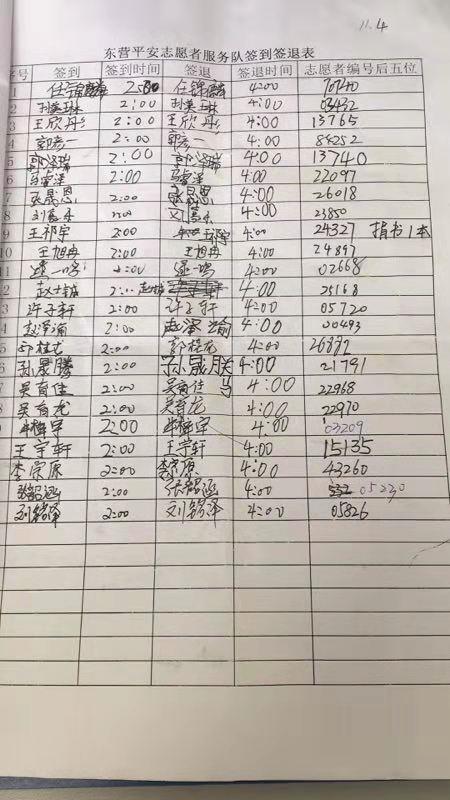 11.4
东营平安志愿者服务队签到签退表
序号 签到 签到时间 签退 签退时间 志愿者编号后五位
1 4:00 70740
2 孙美琳 2:00 孙美琳 4:00 03432
3 王欣彤 2:00 王欣彤 4:00 13765
4 郭彦一 2:00 郭彦一 4:00 84252
5 2:00 4:00 13740
6 2:00 4:00 22097
7 张晟恩 2:00 张晟恩 4:00 26018
8 4:00 23850
9 王祁宇 2:00 王祁宇 4:00 24327 捐书1本
10 王旭冉 2:00 王旭冉 4:00 24897
11 逯一鸣 2:00 逯一鸣 4:00 02668
2 2:00 4:00 25168
3 许子轩 2:00 许子轩 4:00 05720
4 赵泽瑜 2:00 赵泽瑜 4:00 00493
5 郭桂龙 2:00 郭桂龙 4:00
6 孙晟腾 2:00 孙晟朕 4:00 21791
7 吴育佳 2:00 吴育佳 4:00 22968
8 吴育龙 2:00 吴育龙 4:00 22970
2:00 4:00 03209
王宇轩 2:00 王宇轩 4:00 15135
李宗原 2:00 李宗原 4:00 43260
张韶涵 2:00 张韶涵 4:00 05230
刘铭泽 2:00 刘铭泽 4:00 05826